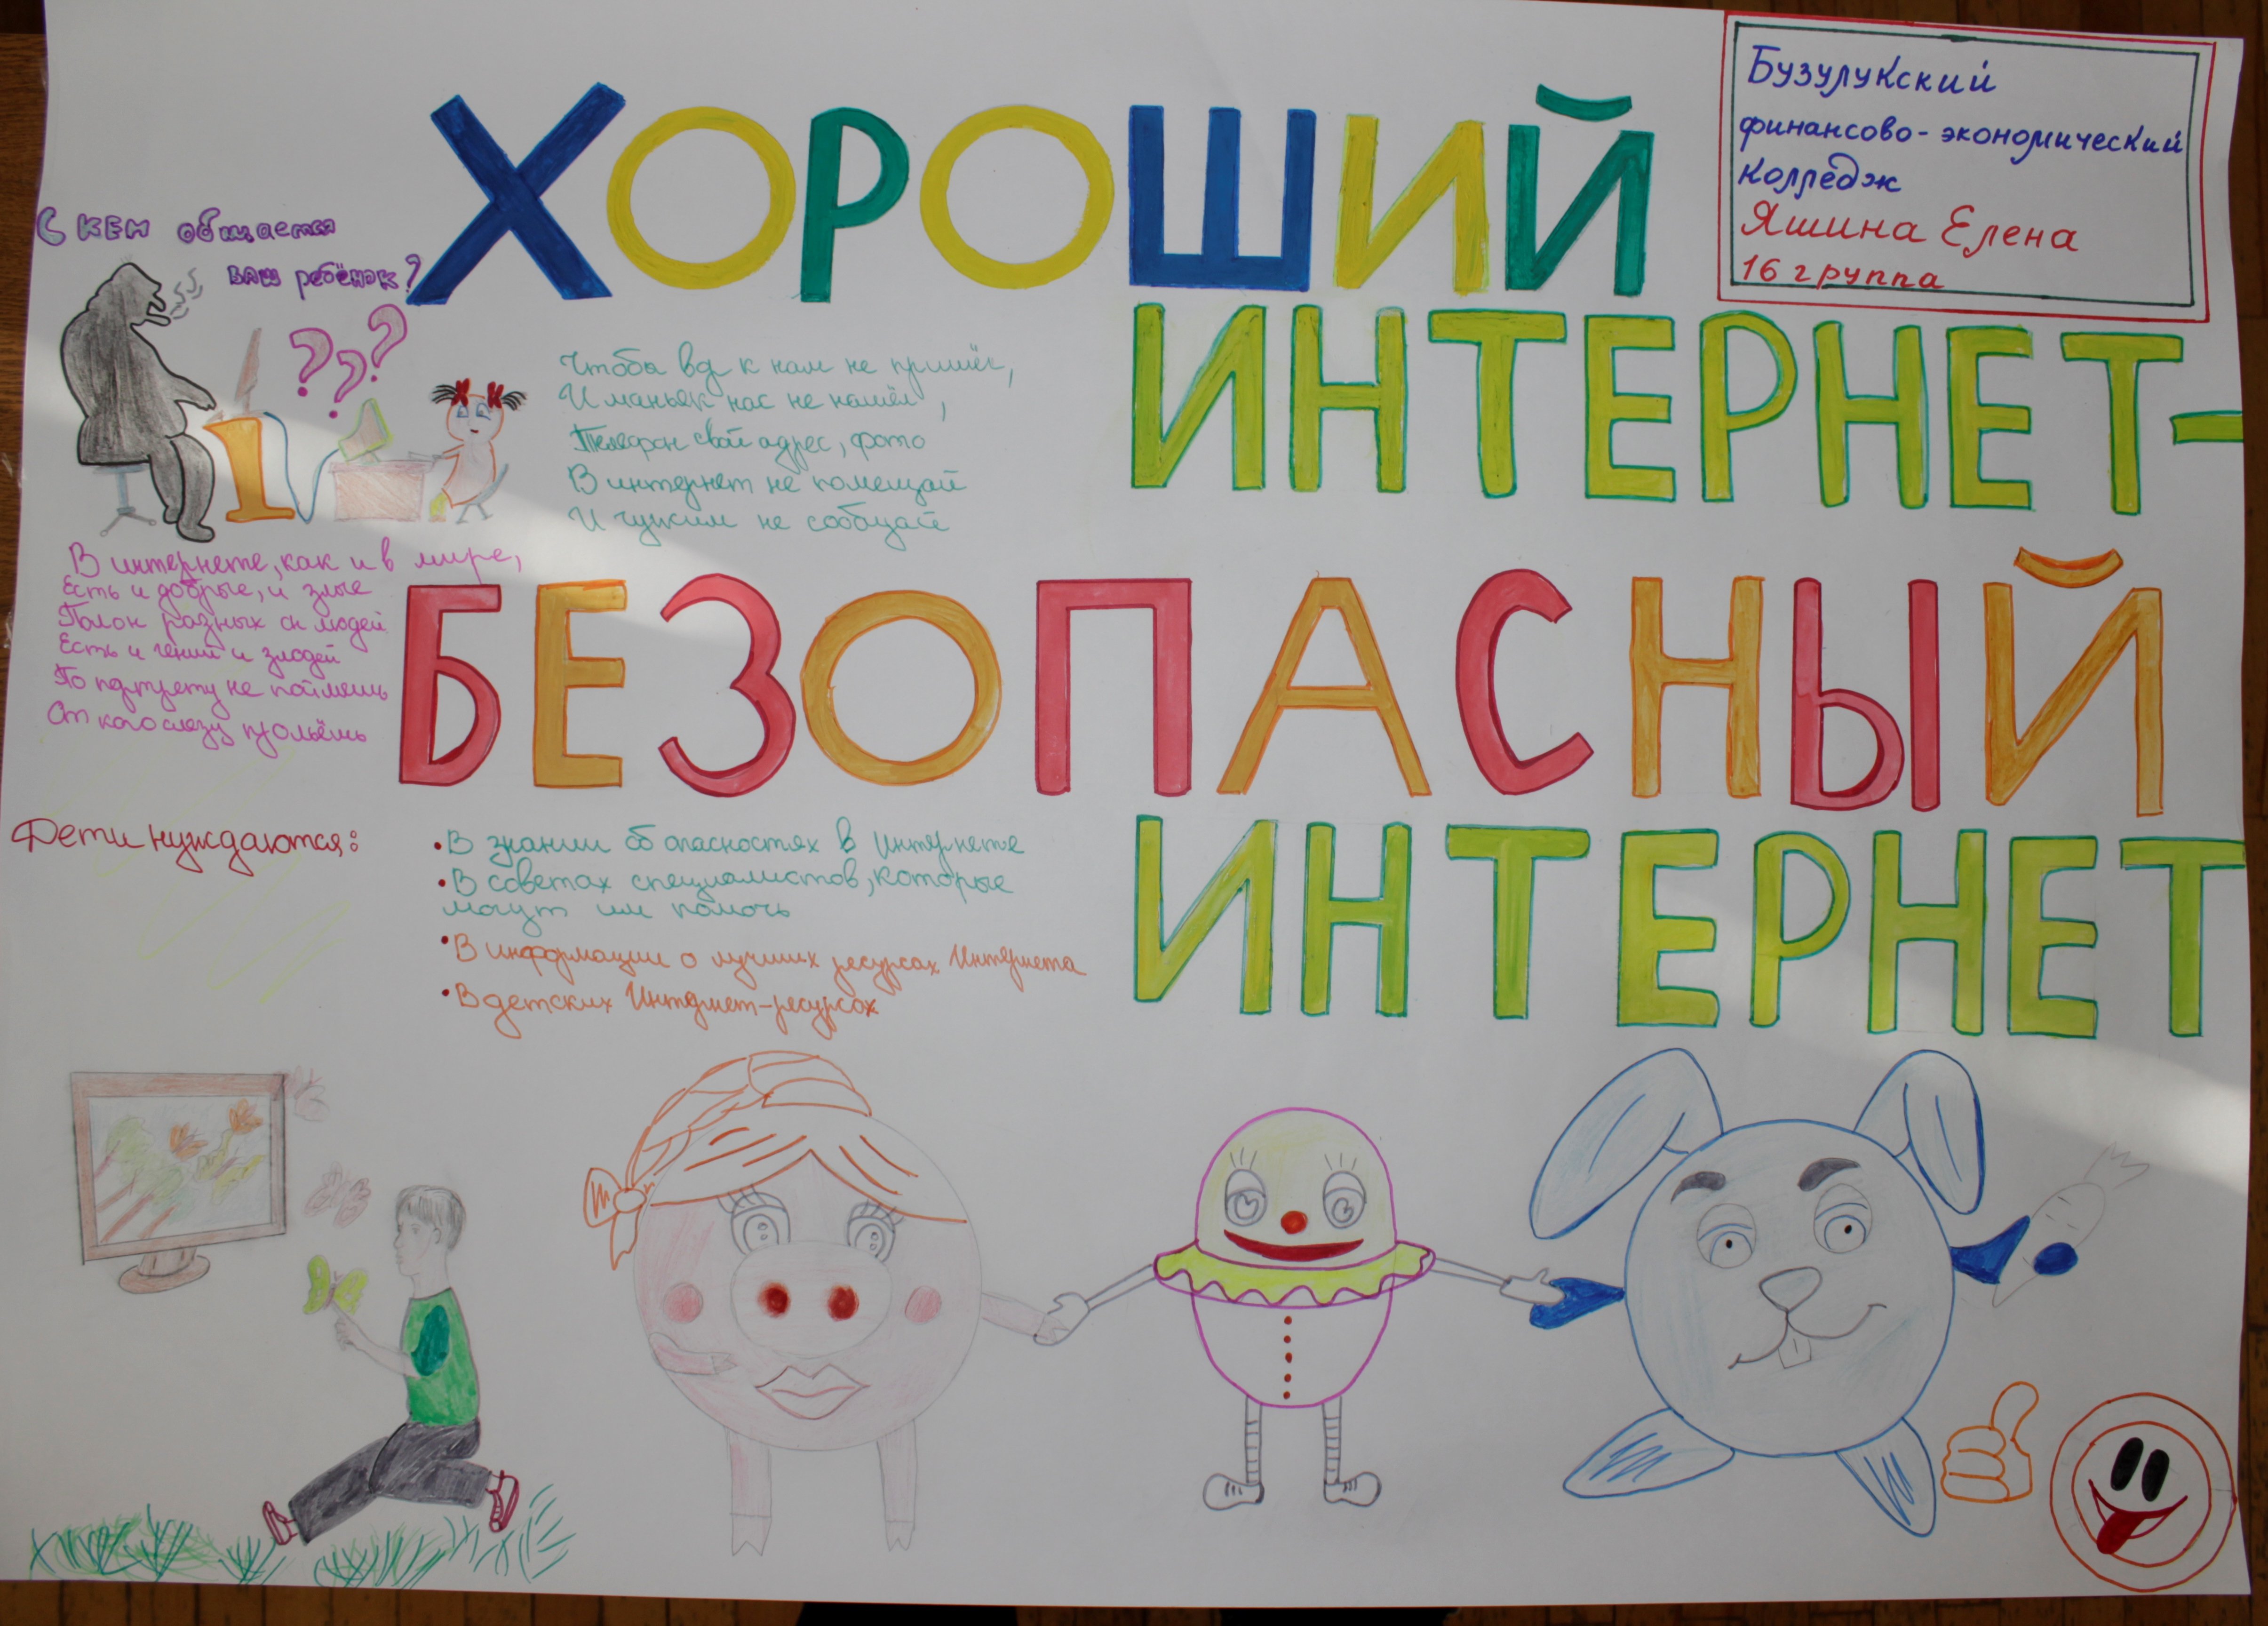 ХОРОШИЙ
ИНТЕРНЕТ-
БЕЗОПАСНЫЙ
ИНТЕРНЕТ
Бузулукский
финансово-экономический
колледж
Яшина Елена
16 группа
С кем общается
ваш ребёнок?
???
Чтобы вд к нам не пришёл,
И маньяк нас не нашёл,
Телефон свой адрес, фото
В интернет не помещай
И чужим не сообщай
В интернете, как и в мире,
Есть и добрые, и злые
Полон разных он людей
Есть и гений и злодей
По портрету не поймёшь
От кого слезу прольёшь
Дети нуждаются:
• В знании об опасностях в Интернете
• В советах специалистов, которые
могут им помочь
• В информации о лучших ресурсах Интернета
• В детских Интернет-ресурсах